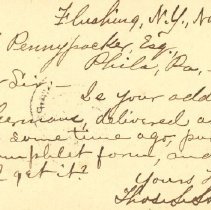 Flushing, N.Y., No
Pennypacker, Esq.
Phila, Pa, –
r Sir –
Is your add
ermans, delivered a
sometime ago, pu
mphlet form, and
I get it?
Yours
Thos. S.